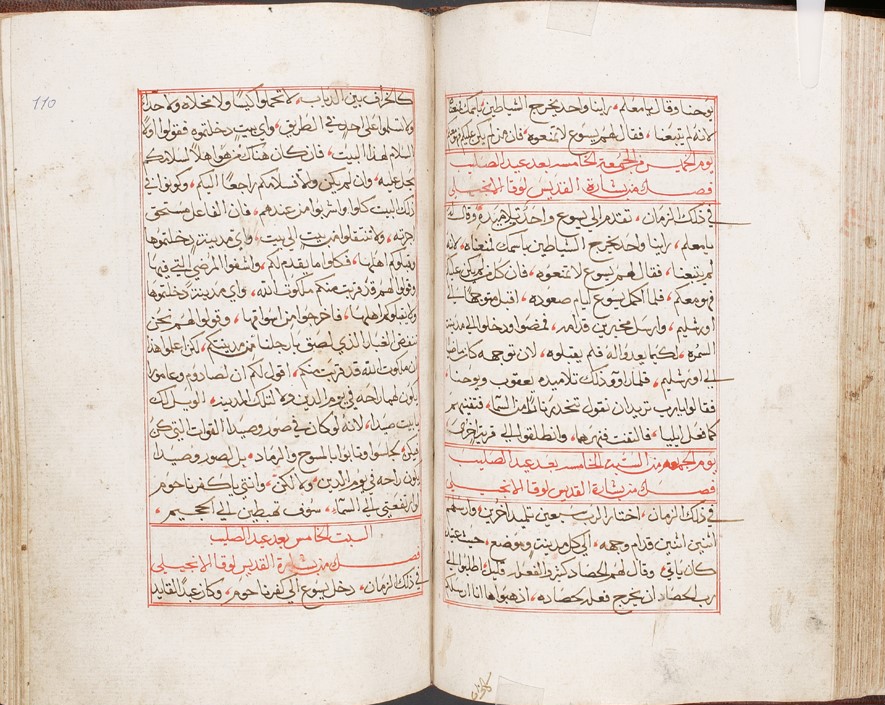 يوحنا وقال يا معلم، راينا واحد يخرج الشياطين باسمك فمنعناه
لانه لم يتبعنا، فقال لهم يسوع لا تمنعوه، فان من لم يكن عليكم فهو معكم
يوم الخميس من الجمعة الخامسه بعد عيد الصليب
فصل من بشارة القديس لوقا الانجيلي
في ذلك الزمان، تقدم الى يسوع واحد من تلاميذه وقال له
يا معلم، راينا واحد يخرج الشياطين باسمك فمنعناه، لانه
لم يتبعنا، فقال لهم يسوع لا تمنعوه، فان كل من لم يكن عليكم
فهو معكم، فلما اكمل يسوع ايام صعوده، اقبل متوجها الى
اورشليم، وارسل مخبرين قدامه، فمضوا ودخلوا الى مدينة
السمره، لكيما يعدوا له فلم يقبلوه، لان توجهه كان ماضيا
الى اورشليم، فلما راوو ذلك تلاميذه يعقوب ويوحنا،
فقالوا يا رب تريد ان نقول تنحدر نار من السما، فتفنيهم
كما فعل ايليا، فالتفت فنهرهما، وانطلقوا الى قرية اخرى،
يوم الجمعه من السبت الخامسه بعد عيد الصليب
فصل من بشارة القديس لوقا الانجيلي
في ذلك الزمان، اختار الرب سبعين تلميد اخرين، وارسلهم
اثنين اثنين قدام وجهه، الى كل مدينة وموضع، حيث عتيد
كان ياتي، وقال لهم الحصاد كثير والفعله قليل، اطلبوا الى
رب الحصاد ان يخرج فعله لحصاده، اذهبوا ها انا ارسلكم
110
كالخراف بين الدياب، لا تحملوا كيسا ولا مخلاه ولا حذا
ولا تسلموا على احد في الطريق، واي بيت دخلتموه فقولوا اولا
السلام لهذا البيت، فان كان هناك من هو اهلا لسلامكم
يحل عليه، وان لم يكن والا فسلامكم راجعا اليكم، وكونوا في
ذلك البيت كلوا واشربوا من عندهم، فان الفاعل مستحق
اجرته، ولا تنتقلوا من بيت الى بيت، واي مدينة دخلتموها
وقبلوكم اهلها، فكلوا ما يقدم لكم، واشفوا المرضى التي فيها
وقولوا لهم قد قربت منكم ملكوت الله، واي مدينة دخلتموها
ولا يقبلوكم اهلها، فاخرجوا من اسواقها، وقولوا لهم نحن
ننفض الغبار الذي لصق بارجلنا من مدينتكم، لكن اعلموا هذا
ان ملكوت الله قد قربت منكم، اقول لكم ان لصادوم وعامورا
يكون لهما راحه في يوم الدين دون تلك المدينه، الويل لك
يا بيت صيدا، لانه لو كان في صور وصيدا القوات التي كن
فيكن، لجلسوا وتابوا بالمسوح والرماد، بل لصور وصيدا
يكون راحه في يوم الدين، ولا لكن، وانتي يا كفرناحوم
لو ارتفعتي الى السماء، سوف تهبطين الى الجحيم،
السبت الخامس بعد عيد الصليب
فصل من بشارة القديس لوقا الانجيلي
في ذلك الزمان، دخل يسوع الى كفرناحوم، وكان عبد القايد